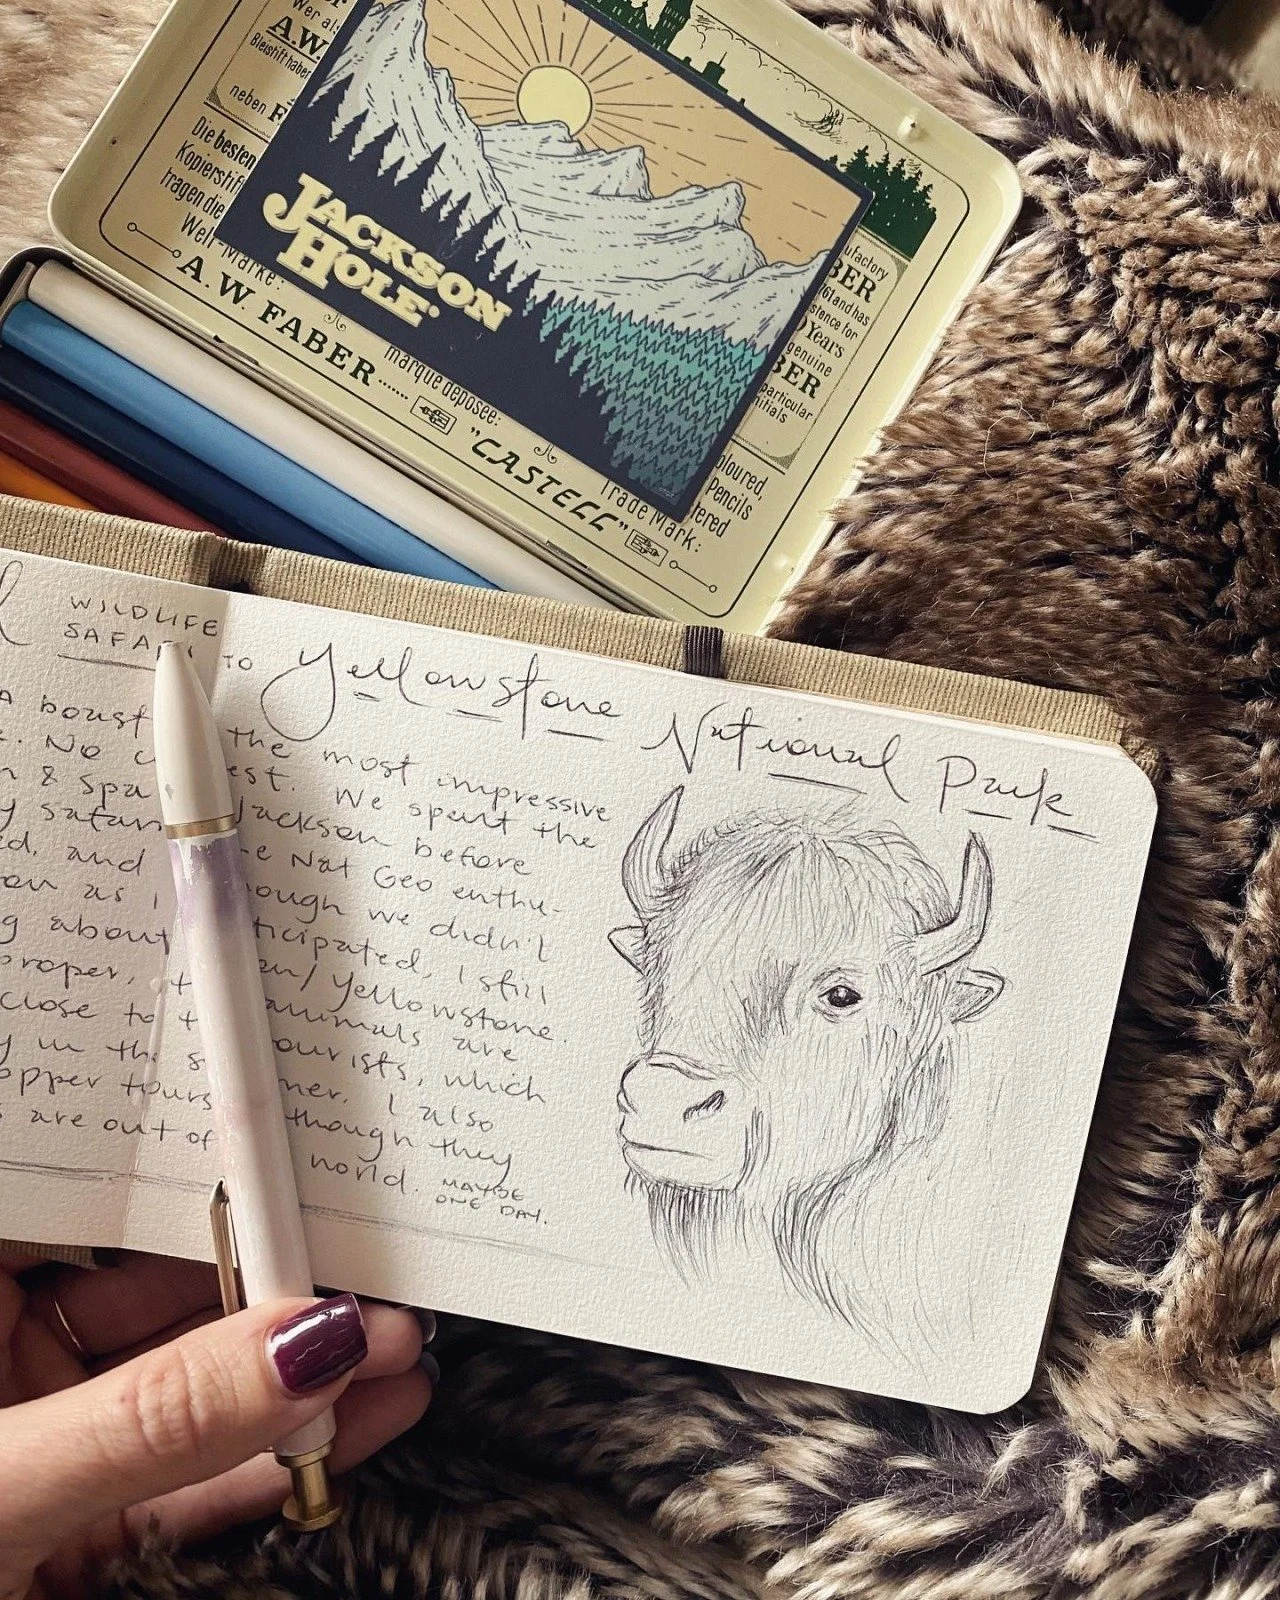 Wer als
A.W.
Bleistift haber
neben F
Die besten
Kopierstif
tragen die
Welt-Marke:
A.W. FABER
marque déposée:
"CASTELL"
Trade Mark:
JACKSON
HOLE
ufactory
BER
761 and has
stence for
Years
genuine
BER
particular
nitials
oloured,
Pencils
tered
WILDLIFE
SAFARI TO Yellowstone National Park
A boust the most impressive
. No est. We spent the
& Spa Jackson before
safari Nat Geo enthu-
ed, and ough we didn't
on as I ticipated, I still
g about an/Yellowstone.
proper, animals are
close to ourists, which
y in the ner. I also
opper tours though they
s are out of world. MAYBE
ONE DAY.